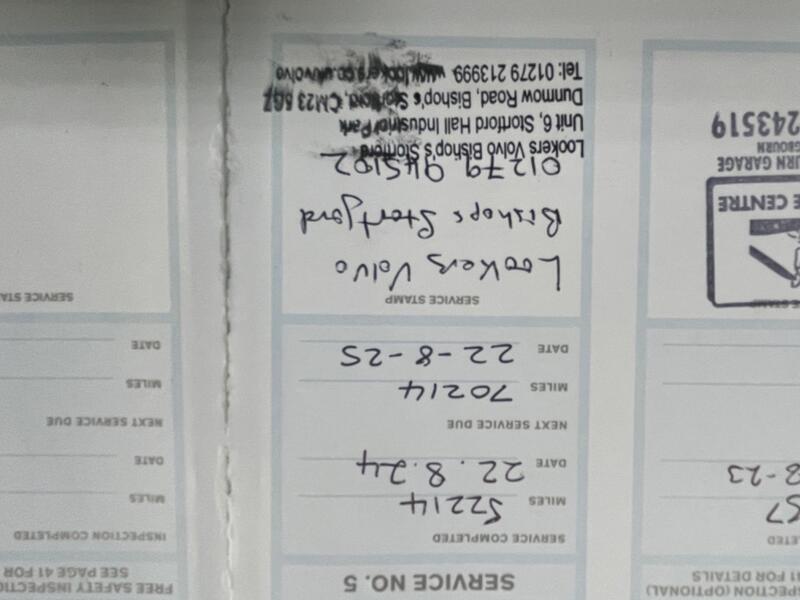 PECTION (OPTIONAL)
41 FOR DETAILS
LETED
57
2-23
E CENTRE
URN GARAGE
GBOURN
243519
SERVICE NO. 5
SERVICE COMPLETED
MILES 52214
DATE 22.8.24
NEXT SERVICE DUE
MILES 70214
DATE 22-8-25
SERVICE STAMP
Lookers Volvo
Bishops Stortford
01279 945102
Lookers Volvo Bishop's Stortford
Unit 6, Stortford Hall Industrial Park
Dunmow Road, Bishop's Stortford, CM23 5GZ
Tel: 01279 213999 www.lookers.co.uk/volvo
FREE SAFETY INSPECTIO
SEE PAGE 41 FOR
INSPECTION COMPLETED
MILES
DATE
NEXT SERVICE DUE
MILES
DATE
SERVICE STA